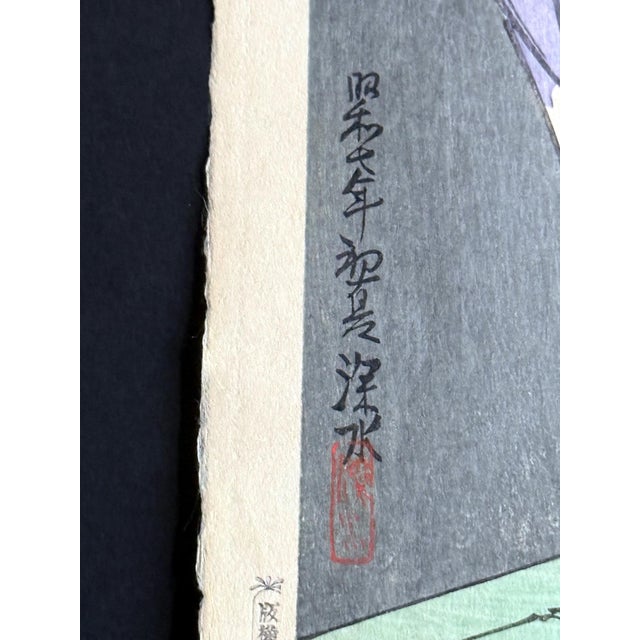 昭和七年初夏深水
版権